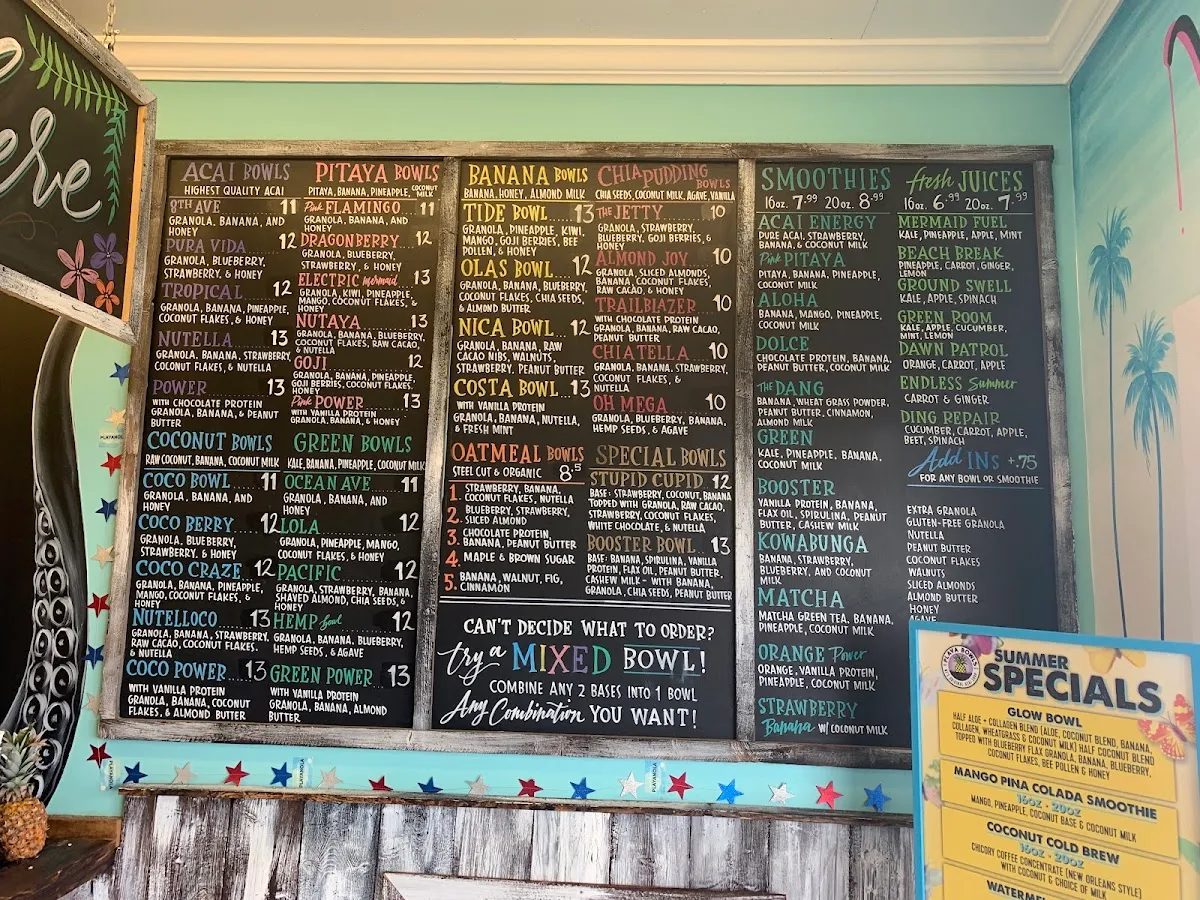 ere
ACAI BOWLS
HIGHEST QUALITY ACAI
8TH AVE 11
GRANOLA, BANANA, AND
HONEY
PURA VIDA 12
GRANOLA, BLUEBERRY,
STRAWBERRY, & HONEY
TROPICAL 12
GRANOLA, BANANA, PINEAPPLE,
COCONUT FLAKES, & HONEY
NUTELLA 13
GRANOLA, BANANA, STRAWBERRY,
COCONUT FLAKES, & NUTELLA
POWER 13
WITH CHOCOLATE PROTEIN
GRANOLA, BANANA, & PEANUT
BUTTER
COCONUT BOWLS
RAW COCONUT, BANANA, COCONUT MILK
COCO BOWL 11
GRANOLA, BANANA, AND
HONEY
COCO BERRY 12
GRANOLA, BLUEBERRY,
STRAWBERRY, & HONEY
COCO CRAZE 12
GRANOLA, BANANA, PINEAPPLE,
MANGO, COCONUT FLAKES, &
HONEY
NUTELLOCO 13
GRANOLA, BANANA, STRAWBERRY,
RAW CACAO, COCONUT FLAKES,
& NUTELLA
COCO POWER 13
WITH VANILLA PROTEIN
GRANOLA, BANANA, COCONUT
FLAKES, & ALMOND BUTTER
PITAYA BOWLS
PITAYA, BANANA, PINEAPPLE, COCONUT
MILK
Pink FLAMINGO 11
GRANOLA, BANANA, AND
HONEY
DRAGONBERRY 12
GRANOLA, BLUEBERRY,
STRAWBERRY, & HONEY
ELECTRIC Mermaid 13
GRANOLA, KIWI, PINEAPPLE,
MANGO, COCONUT FLAKES, &
HONEY
NUTAYA 13
GRANOLA, BANANA, BLUEBERRY,
COCONUT FLAKES, RAW CACAO,
& NUTELLA
GOJI 12
GRANOLA, BANANA, PINEAPPLE,
GOJI BERRIES, COCONUT FLAKES,
HONEY
Pink POWER 13
WITH VANILLA PROTEIN
GRANOLA, BANANA, & HONEY
GREEN BOWLS
KALE, BANANA, PINEAPPLE, COCONUT MILK
OCEAN AVE 11
GRANOLA, BANANA, AND
HONEY
LOLA 12
GRANOLA, PINEAPPLE, MANGO,
COCONUT FLAKES, & HONEY
PACIFIC 12
GRANOLA, STRAWBERRY, BANANA,
SHAVED ALMOND, CHIA SEEDS, &
HONEY
HEMP Bowl 12
GRANOLA, BANANA, BLUEBERRY,
HEMP SEEDS, & AGAVE
GREEN POWER 13
WITH VANILLA PROTEIN
GRANOLA, BANANA, ALMOND
BUTTER
BANANA BOWLS
BANANA, HONEY, ALMOND MILK
TIDE BOWL 13
GRANOLA, PINEAPPLE, KIWI,
MANGO, GOJI BERRIES, BEE
POLLEN, & HONEY
OLAS BOWL 12
GRANOLA, BANANA, BLUEBERRY,
COCONUT FLAKES, CHIA SEEDS,
& ALMOND BUTTER
NICA BOWL 12
GRANOLA, BANANA, RAW
CACAO NIBS, WALNUTS,
STRAWBERRY, PEANUT BUTTER
COSTA BOWL 13
WITH VANILLA PROTEIN
GRANOLA, BANANA, NUTELLA,
& FRESH MINT
OATMEAL BOWLS
STEEL CUT & ORGANIC 8.5
1. STRAWBERRY, BANANA,
COCONUT FLAKES, NUTELLA
2. BLUEBERRY, STRAWBERRY,
SLICED ALMOND
3. CHOCOLATE PROTEIN,
BANANA, PEANUT BUTTER
4. MAPLE & BROWN SUGAR
5. BANANA, WALNUT, FIG,
CINNAMON
CHIA PUDDING
BOWLS
CHIA SEEDS, COCONUT MILK, AGAVE, VANILLA
THE JETTY 10
GRANOLA, STRAWBERRY,
BLUEBERRY, GOJI BERRIES, &
HONEY
ALMOND JOY 10
GRANOLA, SLICED ALMONDS,
BANANA, COCONUT FLAKES,
RAW CACAO, & HONEY
TRAILBLAZER 10
WITH CHOCOLATE PROTEIN
GRANOLA, BANANA, RAW CACAO,
PEANUT BUTTER
CHIATELLA 10
GRANOLA, BANANA, STRAWBERRY,
COCONUT FLAKES, &
NUTELLA
OH MEGA 10
GRANOLA, BLUEBERRY, BANANA,
HEMP SEEDS, & AGAVE
SPECIAL BOWLS
STUPID CUPID 12
BASE: STRAWBERRY, COCONUT, BANANA
TOPPED WITH GRANOLA, RAW CACAO,
STRAWBERRY, COCONUT FLAKES,
WHITE CHOCOLATE, & NUTELLA
BOOSTER BOWL 13
BASE: BANANA, SPIRULINA, VANILLA
PROTEIN, FLAX OIL, PEANUT BUTTER,
CASHEW MILK - WITH BANANA,
GRANOLA, CHIA SEEDS, PEANUT BUTTER
CAN'T DECIDE WHAT TO ORDER?
try a MIXED BOWL!
COMBINE ANY 2 BASES INTO 1 BOWL
Any Combination YOU WANT!
SMOOTHIES
16oz. 7.99 20oz. 8.99
ACAI ENERGY
PURE ACAI, STRAWBERRY,
BANANA, & COCONUT MILK
Pink PITAYA
PITAYA, BANANA, PINEAPPLE,
COCONUT MILK
ALOHA
BANANA, MANGO, PINEAPPLE,
COCONUT MILK
DOLCE
CHOCOLATE PROTEIN, BANANA,
PEANUT BUTTER, COCONUT MILK
THE DANG
BANANA, WHEAT GRASS POWDER,
PEANUT BUTTER, CINNAMON,
ALMOND MILK
GREEN
KALE, PINEAPPLE, BANANA,
COCONUT MILK
BOOSTER
VANILLA PROTEIN, BANANA,
FLAX OIL, SPIRULINA, PEANUT
BUTTER, CASHEW MILK
KOWABUNGA
BANANA, STRAWBERRY,
BLUEBERRY, AND COCONUT
MILK
MATCHA
MATCHA GREEN TEA, BANANA,
PINEAPPLE, COCONUT MILK
ORANGE Power
ORANGE, VANILLA PROTEIN,
PINEAPPLE, COCONUT MILK
STRAWBERRY
Banana W/ COCONUT MILK
fresh JUICES
16oz. 6.99 20oz. 7.99
MERMAID FUEL
KALE, PINEAPPLE, APPLE, MINT
BEACH BREAK
PINEAPPLE, CARROT, GINGER,
LEMON
GROUND SWELL
KALE, APPLE, SPINACH
GREEN ROOM
KALE, APPLE, CUCUMBER,
MINT, LEMON
DAWN PATROL
ORANGE, CARROT, APPLE
ENDLESS Summer
CARROT & GINGER
DING REPAIR
CUCUMBER, CARROT, APPLE,
BEET, SPINACH
Add INS +.75
FOR ANY BOWL OR SMOOTHIE
EXTRA GRANOLA
GLUTEN-FREE GRANOLA
NUTELLA
PEANUT BUTTER
COCONUT FLAKES
WALNUTS
SLICED ALMONDS
ALMOND BUTTER
HONEY
AGAVE
PLAYA BOWLS
SUMMER
SPECIALS
GLOW BOWL
HALF ALOE + COLLAGEN BLEND (ALOE, COCONUT BLEND, BANANA,
COLLAGEN, WHEATGRASS & COCONUT MILK) HALF COCONUT BLEND
TOPPED WITH BLUEBERRY FLAX GRANOLA, BANANA, BLUEBERRY,
COCONUT FLAKES, BEE POLLEN & HONEY
MANGO PINA COLADA SMOOTHIE
16OZ - 20OZ
MANGO, PINEAPPLE, COCONUT BASE & COCONUT MILK
COCONUT COLD BREW
16OZ - 20OZ
CHICORY COFFEE CONCENTRATE (NEW ORLEANS STYLE)
WITH COCONUT & CHOICE OF MILK
PLAYANOLA
PLAYANOLA